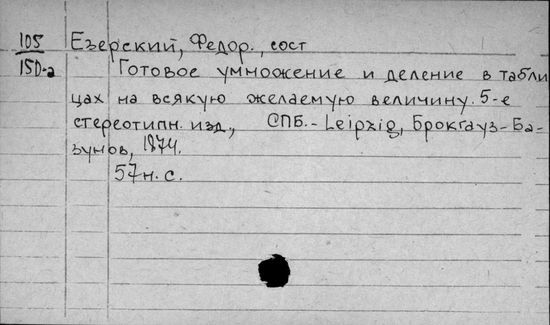 105 Езерский, Федор., сост
150-а Готовое умножение и деление в табли
цах на всякую желаемую величину. 5-е
стереотипн. изд., СПБ.- Leipzig, Брокгауз-Ба-
зунов, 1874.
57н. с.